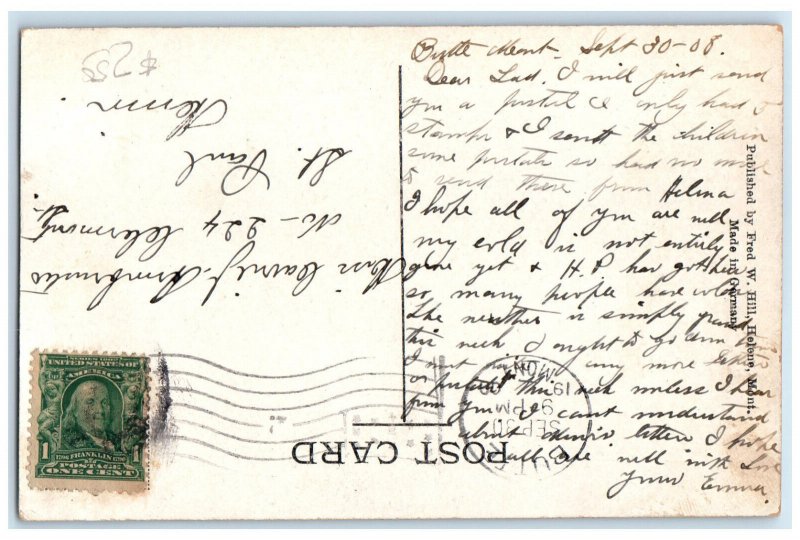 Butte Mont- Sept 30-08.
Dear Lad. I will just send
you a postal I only had 2
stamps & I sent the children
some postals so had no more
to send these from Helena
I hope all of you are well
my cold is not entirely
gone yet & H. P has got here
so many people have colds
The weather is simply grand
this week I ought to go down
I not any more letters
or postals this week unless I hear
from you I cant understand
about letters I hope
all are well with love
yours Emma.
Published by Fred W. Hill, Helene, Mont.
Made in Germany
POST CARD
BUTTE
SEP 30
9 PM
19 08
MONT
$ 255
Miss Carrie
No- 224 Clermont St.
St. Paul
Minn.
SERIES 1902
UNITED STATES OF
AMERICA
1 FRANKLIN 1
POSTAGE
ONE CENT